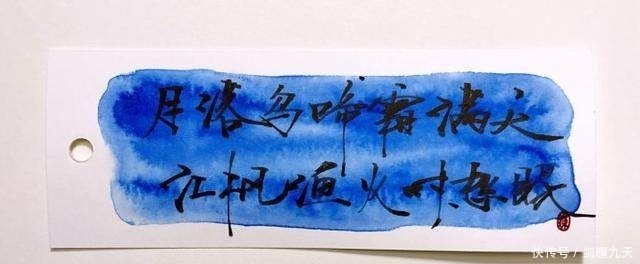 月落乌啼霜满天
江枫渔火对愁眠
快传号/剑耀九天